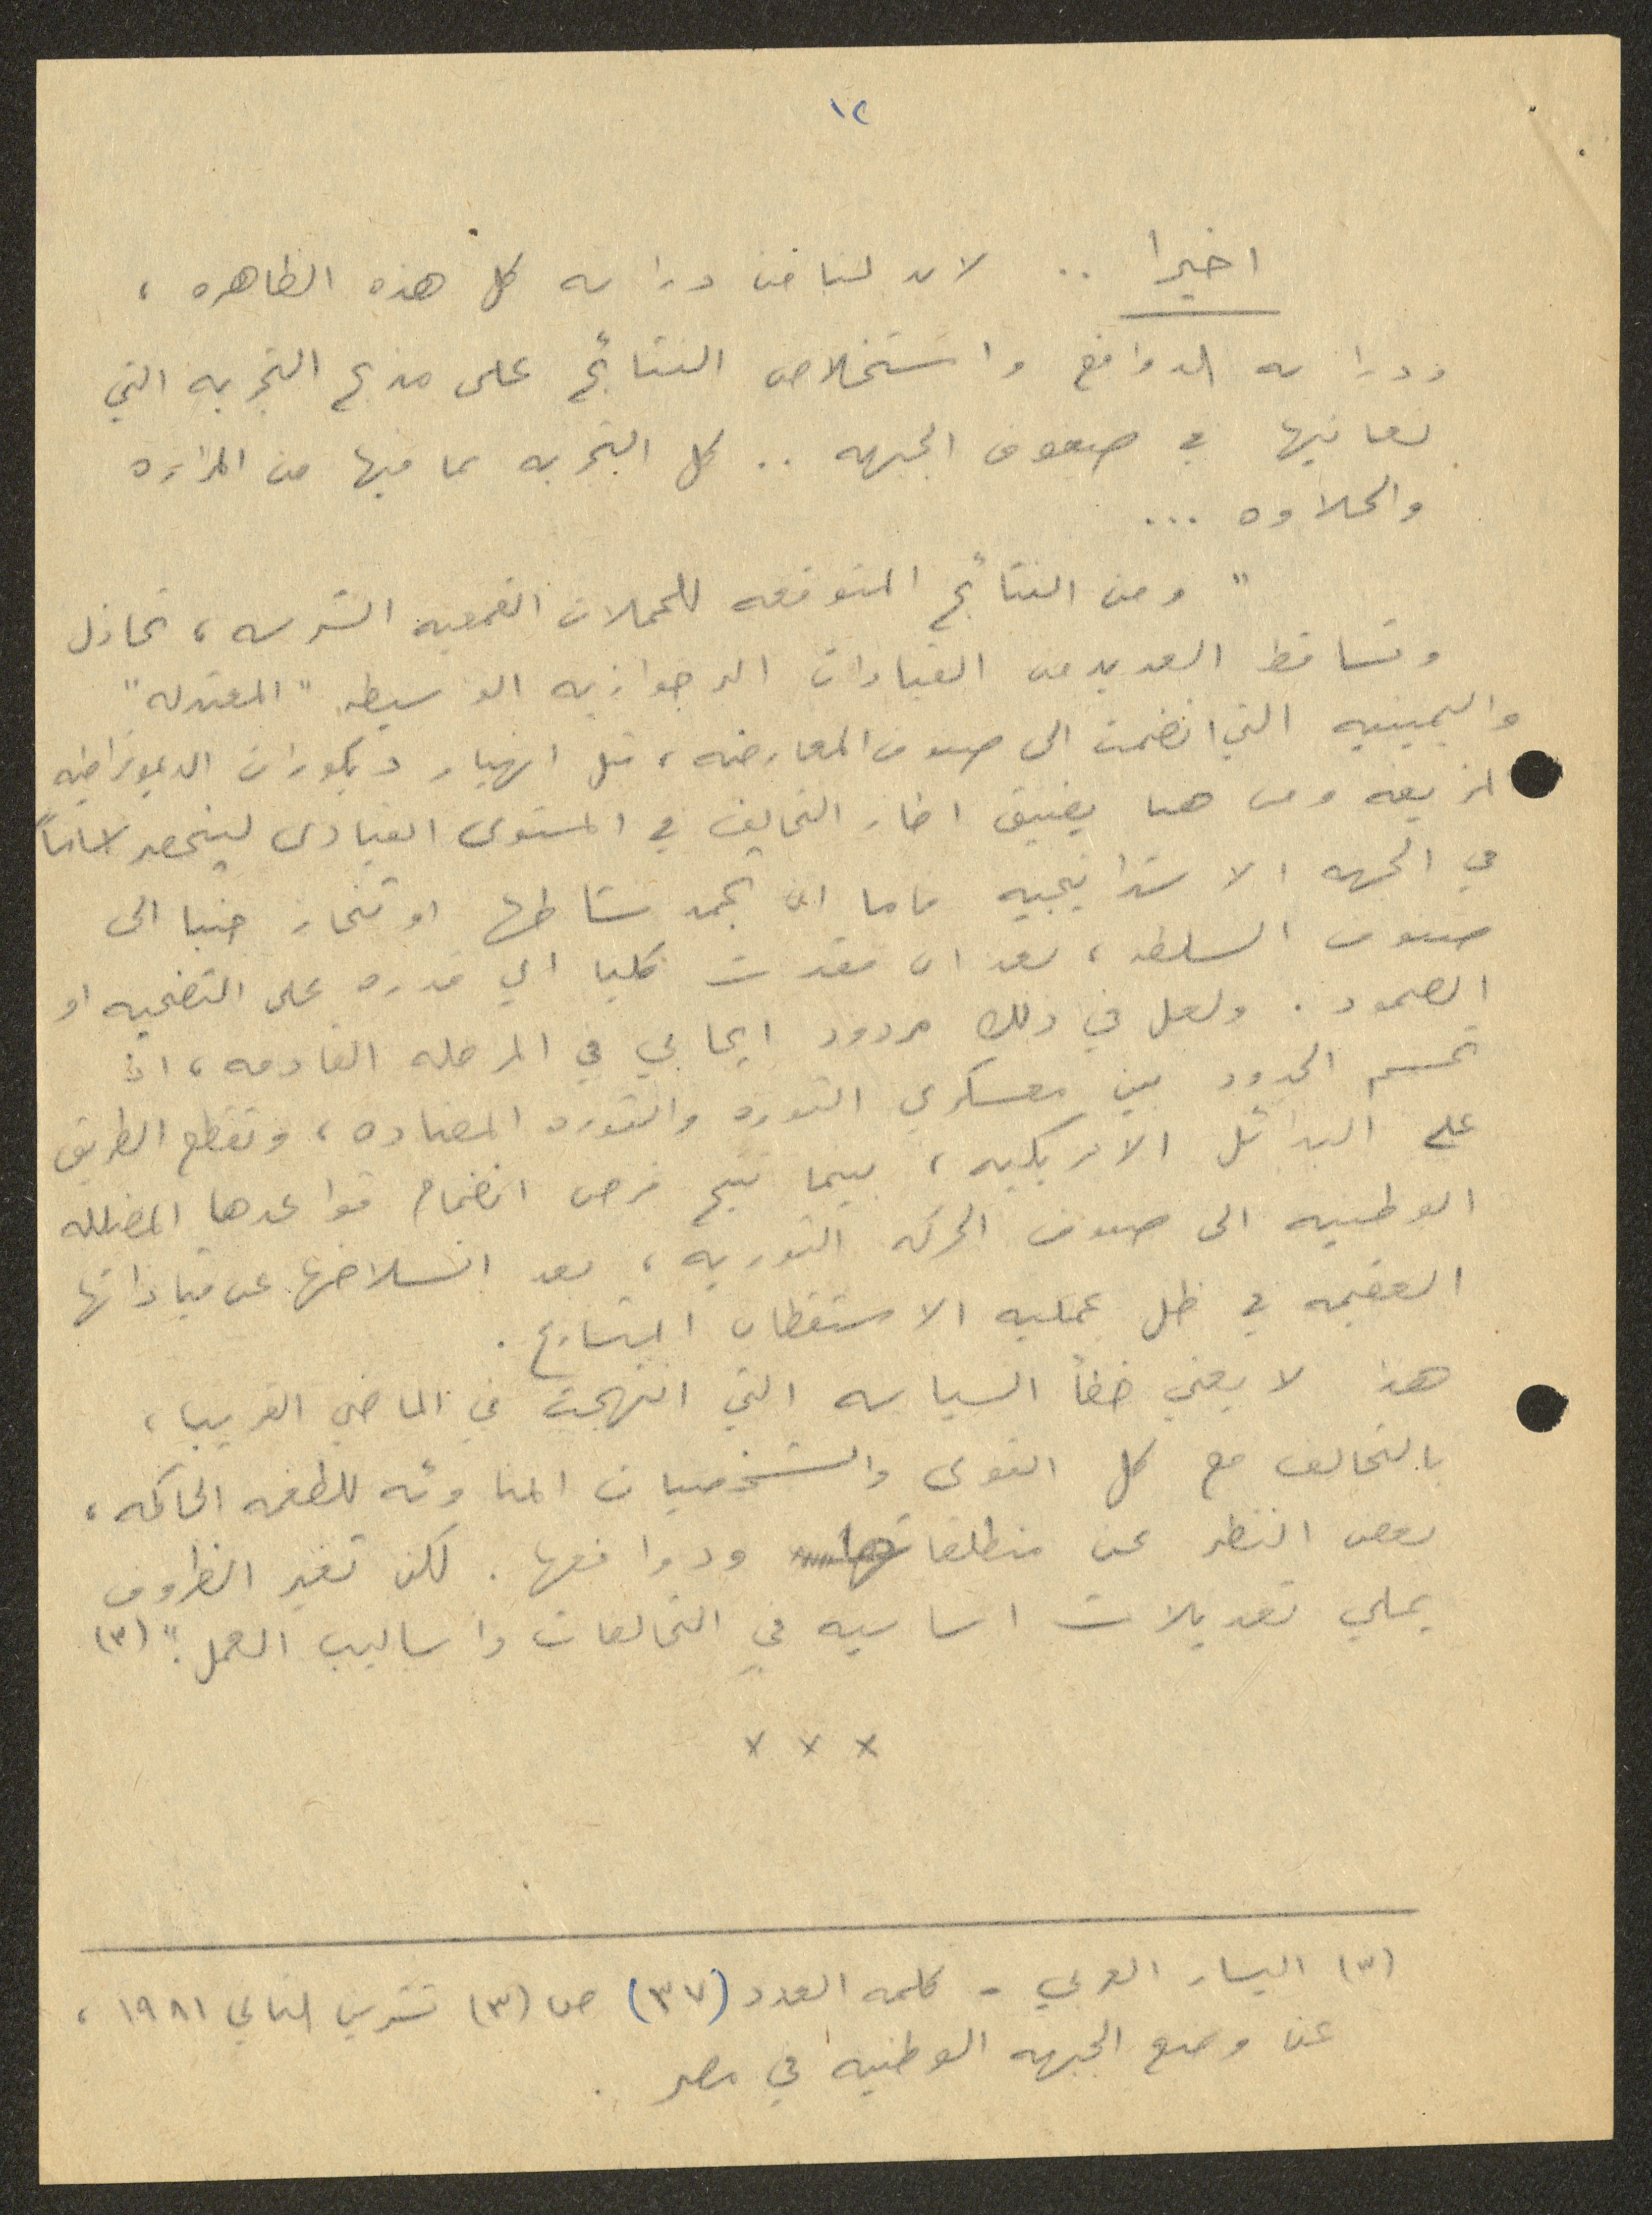 ١٢
اخيرا .. لابد لنا من دراسه كل هذه الظاهره ،
ودراسه الدوافع واستخلاص النتائج على مذبح التجربه التي
نعانيها في صفوف الجبهه .. كل التجربه بما فيها من المراره
والحلاوه ...
" ومن النتائج المتوقعه للحملات القمعيه الشرسه ، تخاذل
وتساقط العديد من القيادات البرجوازيه الوسيطه "المعتدله"
واليمينيه التي انضمت الى صفوف المعارضه ، قبل انهيار ديكورات الديموقراطيه
المزيفه ومن هنا يضيق اطار التحالف في المستوى القيادى لينحصر اساساً
في الجبهه الاستراتيجيه فاما ان تجمد نشاطها او تنحاز جنبا الى
صفوف السلطه ، بعد ان فقدت كليا اي قدره على التضحيه او
الصمود . ولعل في ذلك مردود ايجابي في المرحله القادمه ، اذ
تحسم الحدود بين معسكري الثوره والثوره المضاده ، وتقطع الطريق
على البدائل الامريكيه ، بينما تتيح فرص انضمام قواعدها المضلله
الوطنيه الى صفوف الحركه الثوريه ، بعد انسلاخها عن قياداتها
العقيمه في ظل عمليه الاستقطاب المتسارع .
هذا لا يعني خطأ السياسه التي انتهجت في الماضي القريب ،
بالتحالف مع كل القوى والشخصيات المناوئه للطغمه الحاكمه ،
بغض النظر عن منطلقاتها ودوافعها . لكن تغير الظروف
يملي تعديلات اساسيه في التحالفات واساليب العمل ." (٣)
× × ×
(٣) اليسار العربي - كلمه العدد (٣٧) ص (٣) تشرين الثاني ١٩٨١ ،
عن وضع الجبهه الوطنيه في مصر .